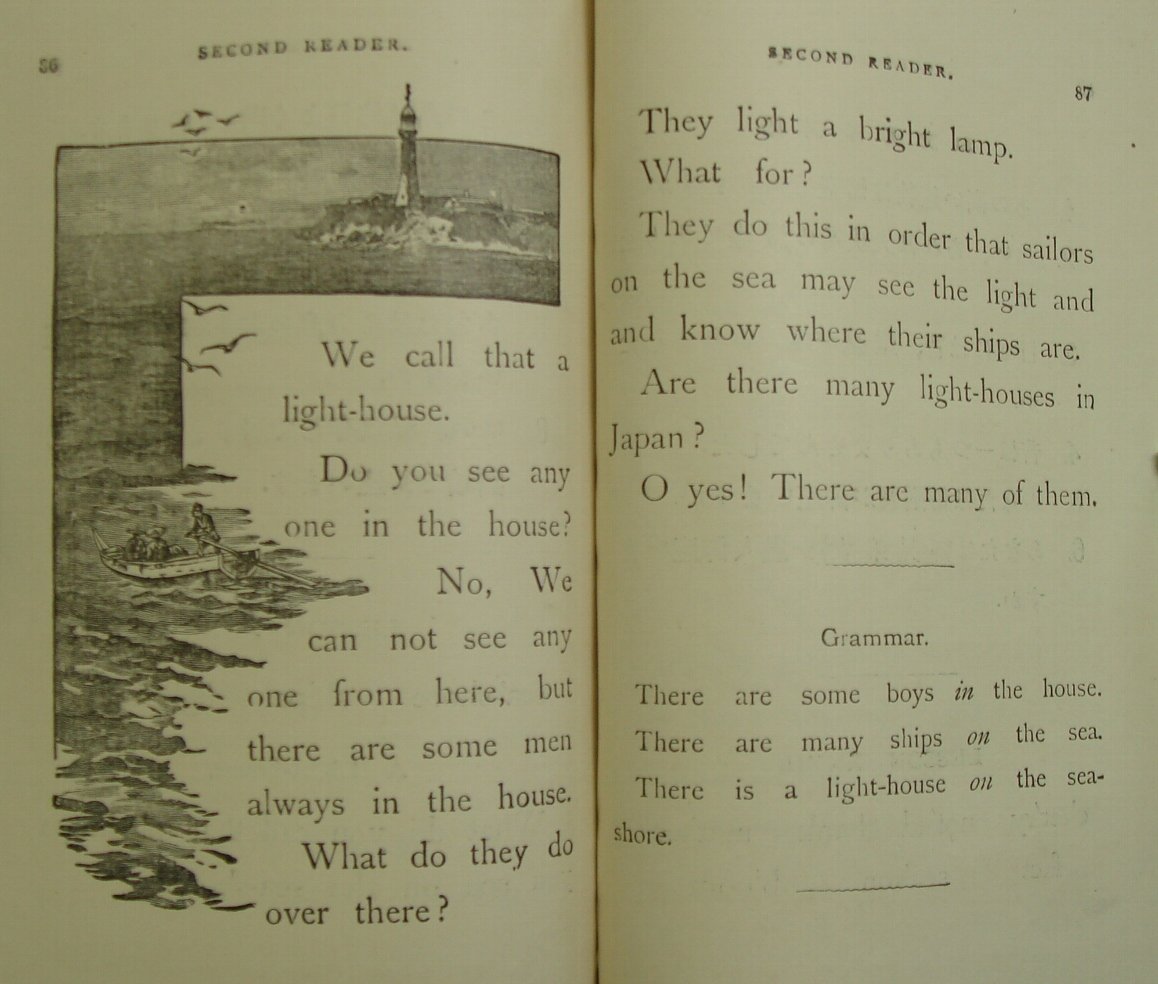 86
SECOND READER.
We call that a
light-house.
Do you see any
one in the house?
No, We
can not see any
one from here, but
there are some men
always in the house.
What do they do
over there?
SECOND READER.
87
They light a bright lamp.
What for?
They do this in order that sailors
on the sea may see the light and
and know where their ships are.
Are there many light-houses in
Japan?
O yes! There are many of them.
Grammar.
There are some boys in the house.
There are many ships on the sea.
There is a light-house on the sea-
shore.